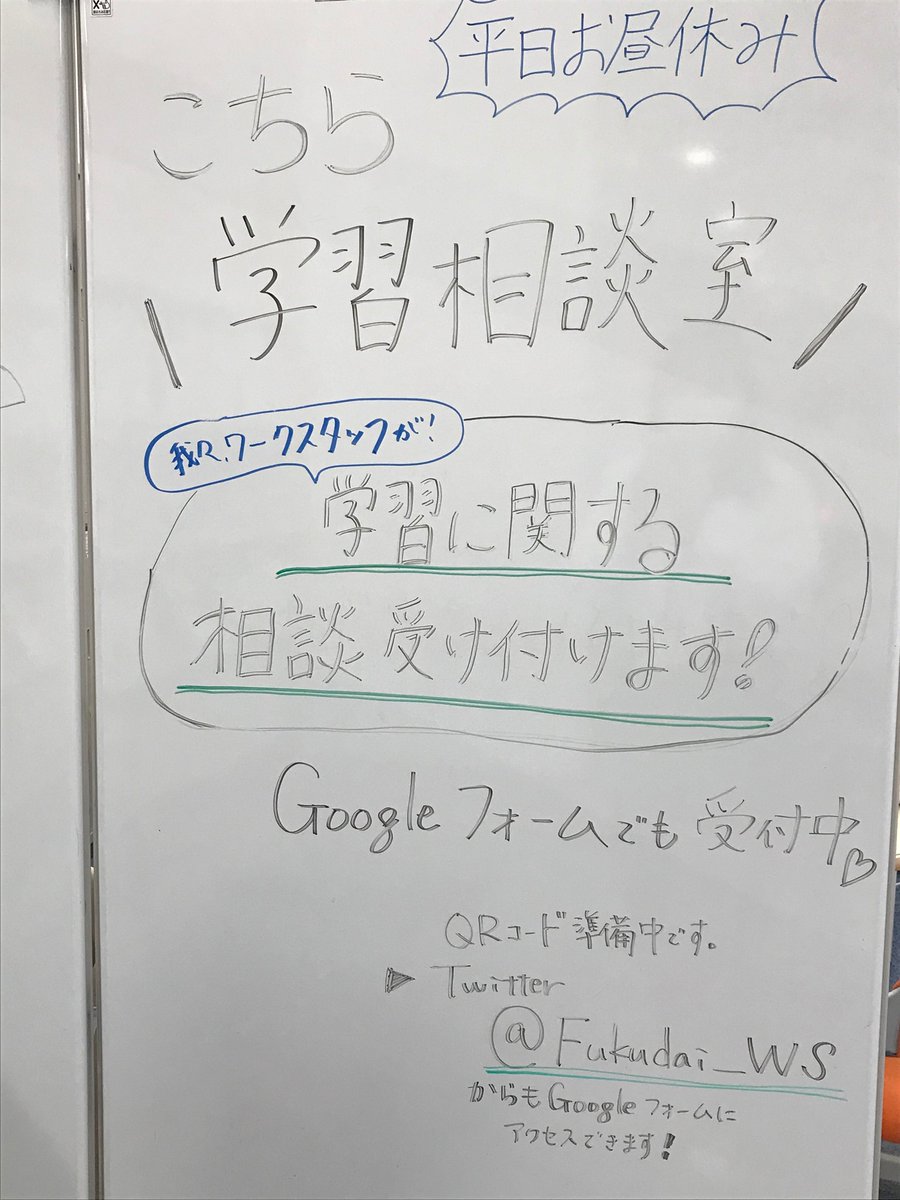 平日お昼休み
こちら
学習相談室
我々、ワークスタッフが!
学習に関する
相談受け付けます!
Googleフォームでも受付中♡
QRコード準備中です。
▶ Twitter
@Fukudai_WS
からもGoogleフォームに
アクセスできます!